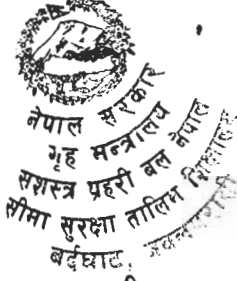 नेपाल सरकार
गृह मन्त्रालय
सशस्त्र प्रहरी बल नेपाल
सीमा सुरक्षा तालिम शिक्षालय
बर्दघाट,